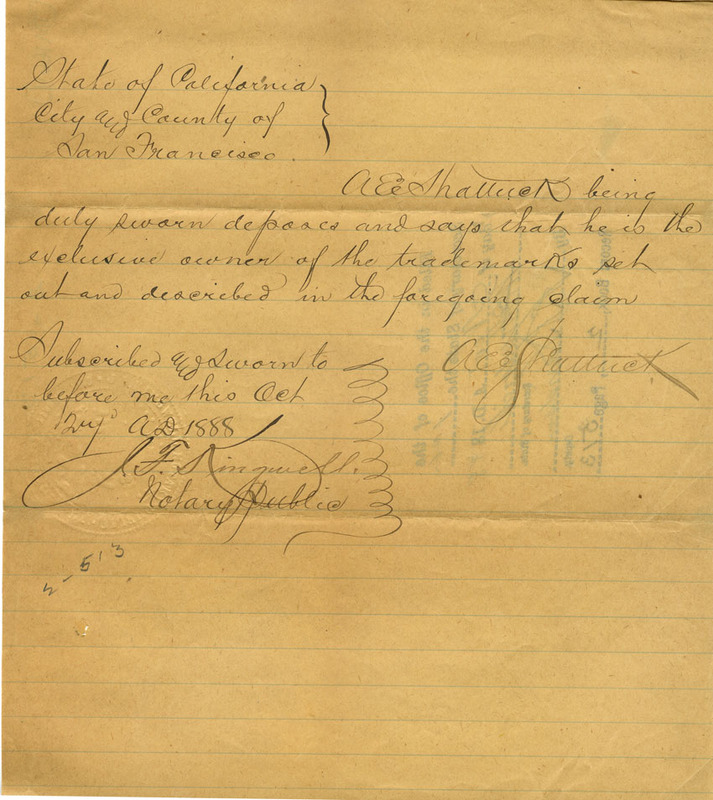 State of California
City and County of
San Francisco.
A E Shattuck being
duly sworn deposes and says that he is the
exclusive owner of the trademarks set
out and described in the foregoing claim
Subscribed and Sworn to
before me this Oct
A D 1888
A E Shattuck
J. F. Kingwell.
Notary Public
2-513